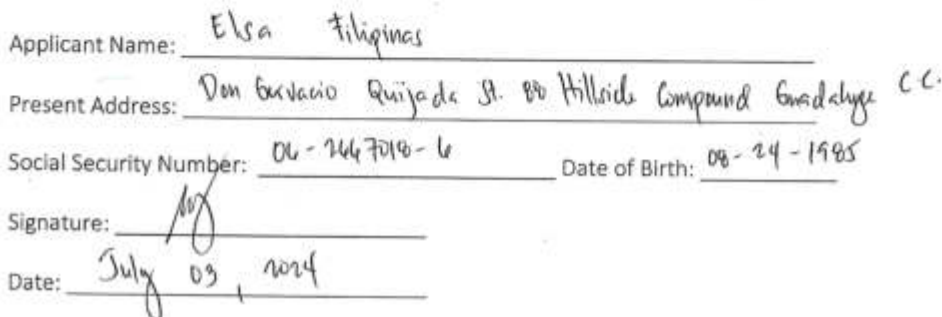 Applicant Name: Elsa Filipinas
Present Address: Don Gervacio Quijada St. 88 Hillside Compound Guadalupe C.C.
Social Security Number: 06-2667018-6 Date of Birth: 08-24-1985
Signature:
Date: July 03, 2024